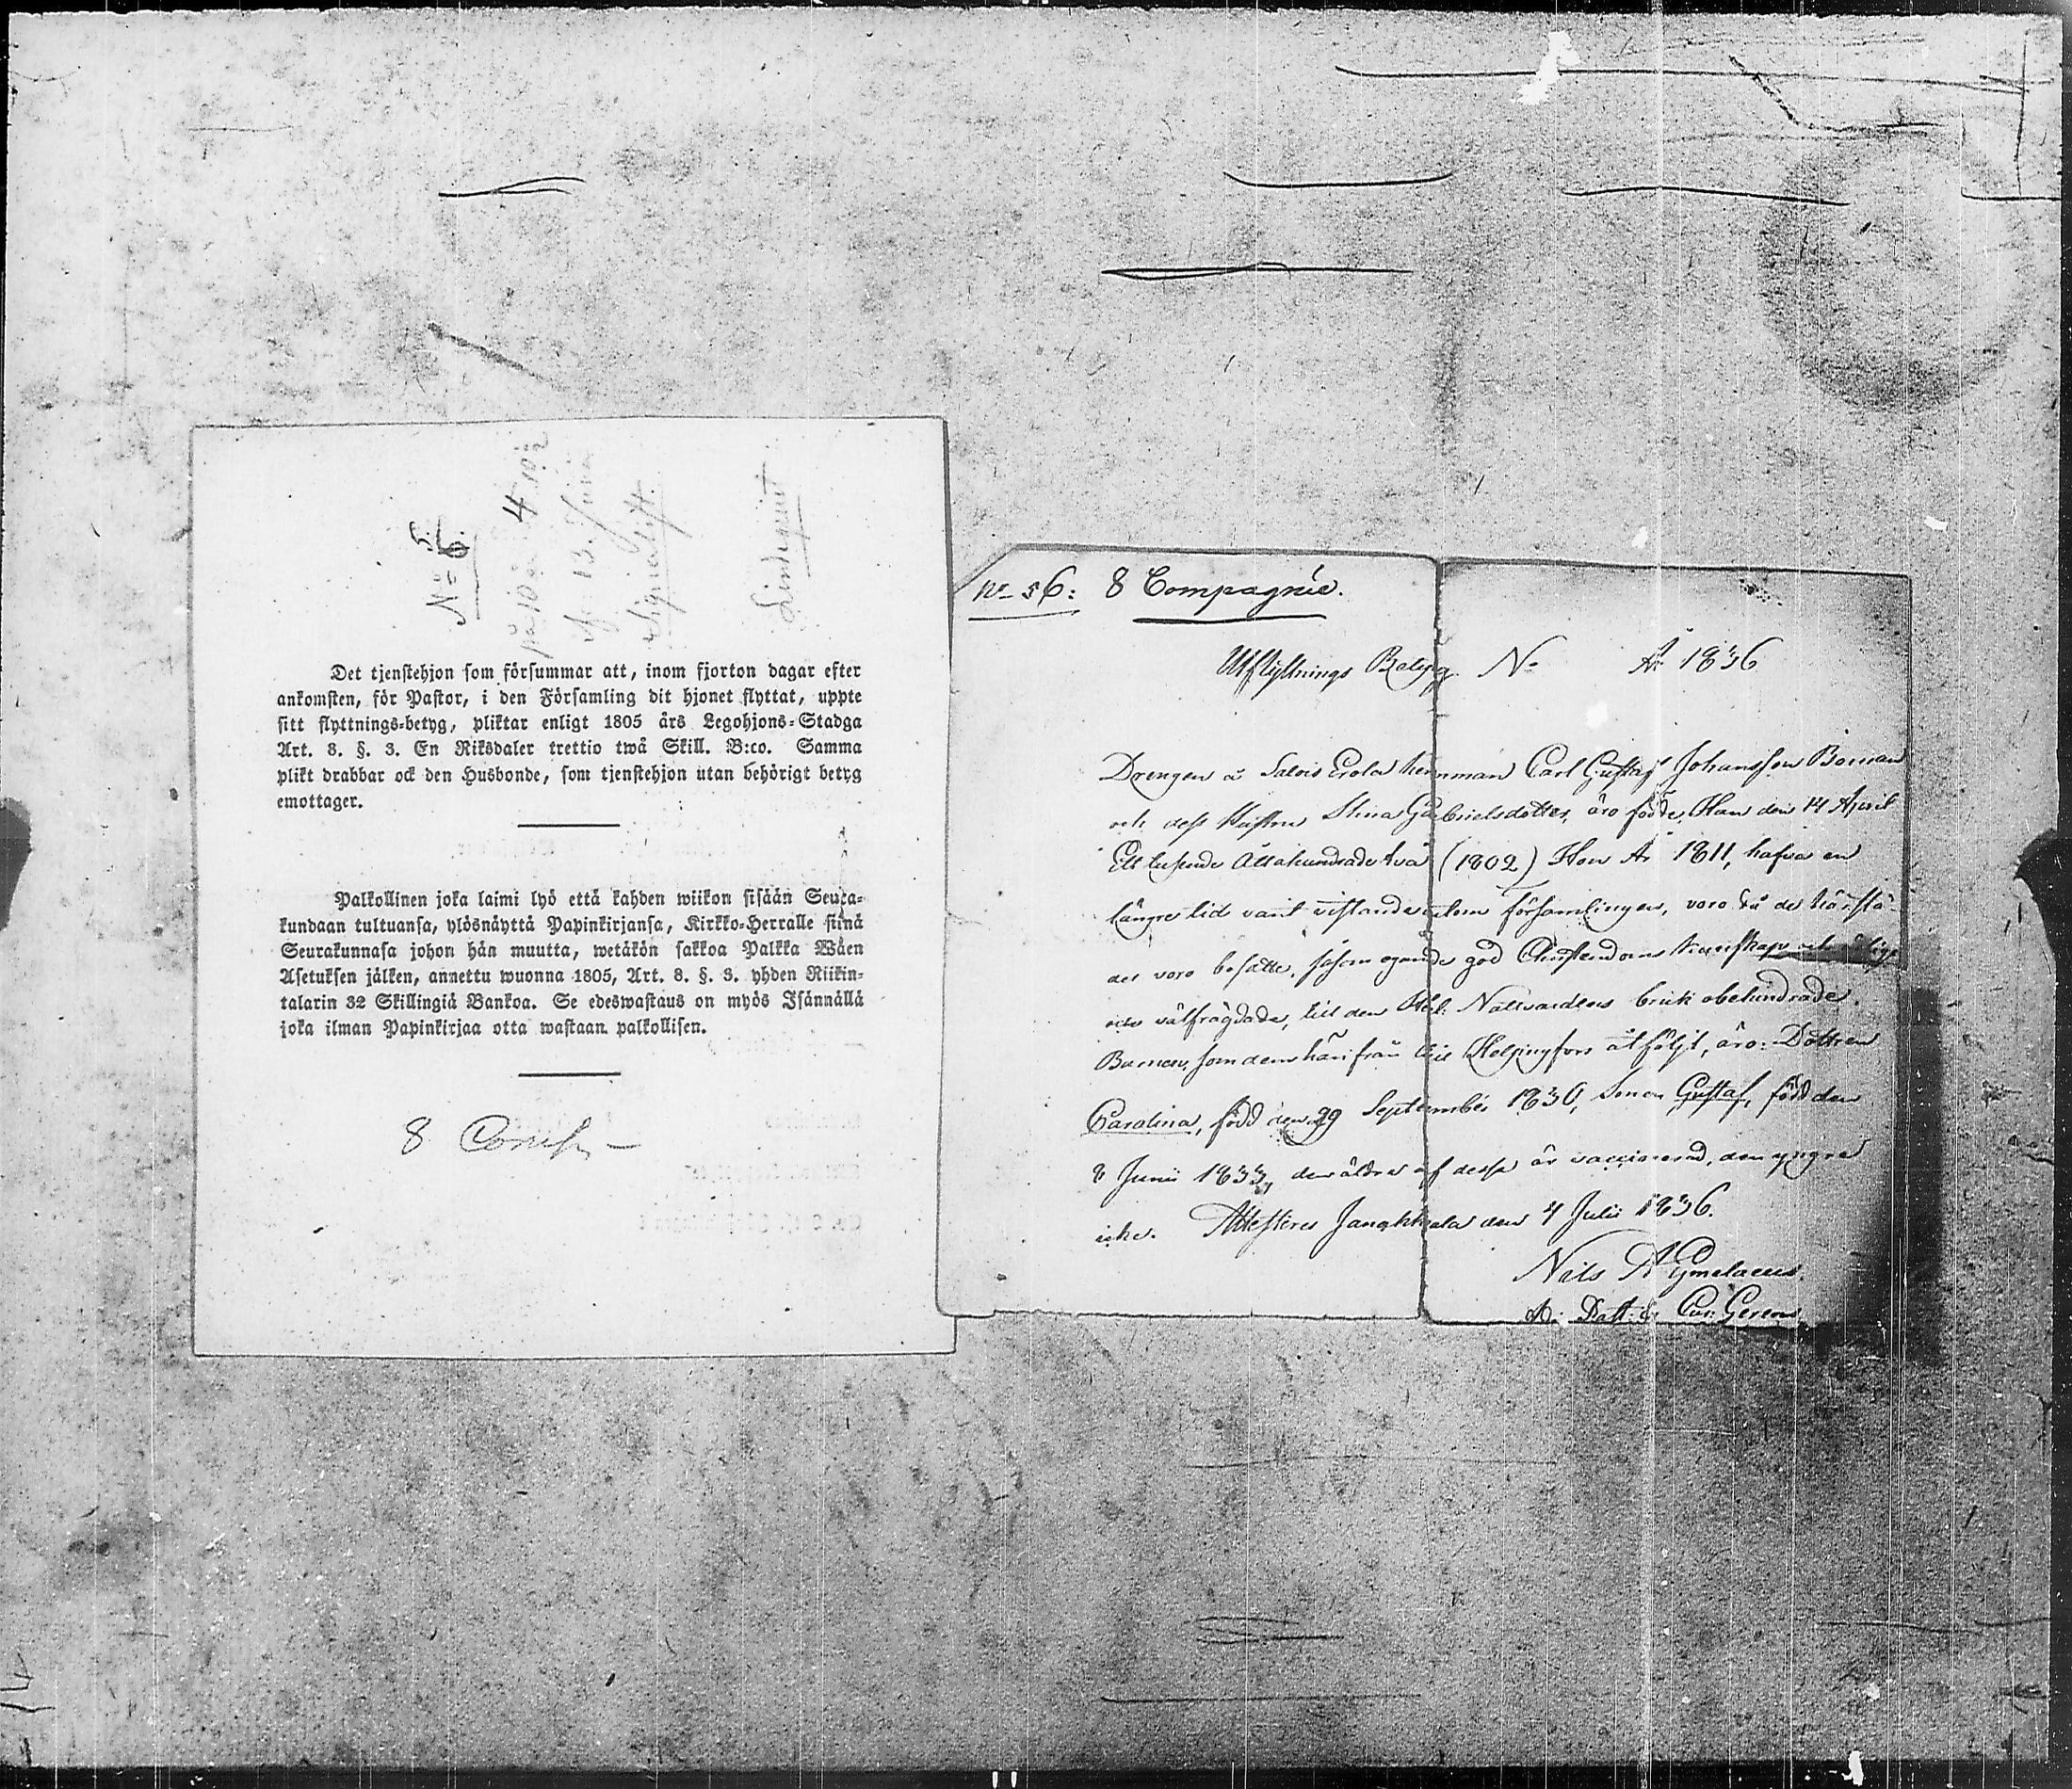 No 56.
på 10 4
13 Juni
Lindequist
Det tjenstehjon som försummar att, inom fjorton dagar efter
ankomsten, för Pastor, i den Församling dit hjonet flyttat, uppte
sitt flyttnings-betyg, pliktar enligt 1805 års Legohjons-Stadga
Art. 8. §. 3. En Riksdaler trettio twå Skill. B:co. Samma
plikt drabbar ock den Husbonde, som tjenstehjon utan behörigt betyg
emottager.
Palkollinen joka laimi lyö että kahden wiikon sisään Seura-
kundaan tultuansa, ylösnäyttä Papinkirjansa, Kirkko-Herralle siinä
Seurakunnasa johon hän muutta, wetäkön sakkoa Palkka Wäen
Asetuksen jälken, annettu wuonna 1805, Art. 8. §. 3. yhden Riikin-
talarin 32 Skillingiä Bankoa. Se edeswastaus on myös Isännällä
joka ilman Papinkirjaa otta wastaan palkollisen.
8 Comp
No 56: 8 Compagnie.
Utflyttnings Betyg No År 1836
Drengen å Salois Erola hemman Carl Gustaf Johansson Boman
och dess Hustru Stina Gabrielsdotter, äro födde, Han den 14 April
Ett tusende Åttahundrade två (1802) Hon År 1811, hafva en
längre tid varit vistande utom församlingen, voro då de härstä-
des voro bosatte, såsom egande god Christendoms kunskap och
och välfrägdade, till den Hel: Nattvardens bruk obehindrade.
Barnen, som dem härifrån till Helsingfors åtföljt, äro: Dottren
Carolina, född den 29 September 1830, Sonen Gustaf, född den
8 Junii 1833, den äldre af dessa är vaccinerad, den yngre
icke. Attesteres Janakkala den 4 Julii 1836.
Nils A Gymelaeus.
Past: Cur: Gerens.